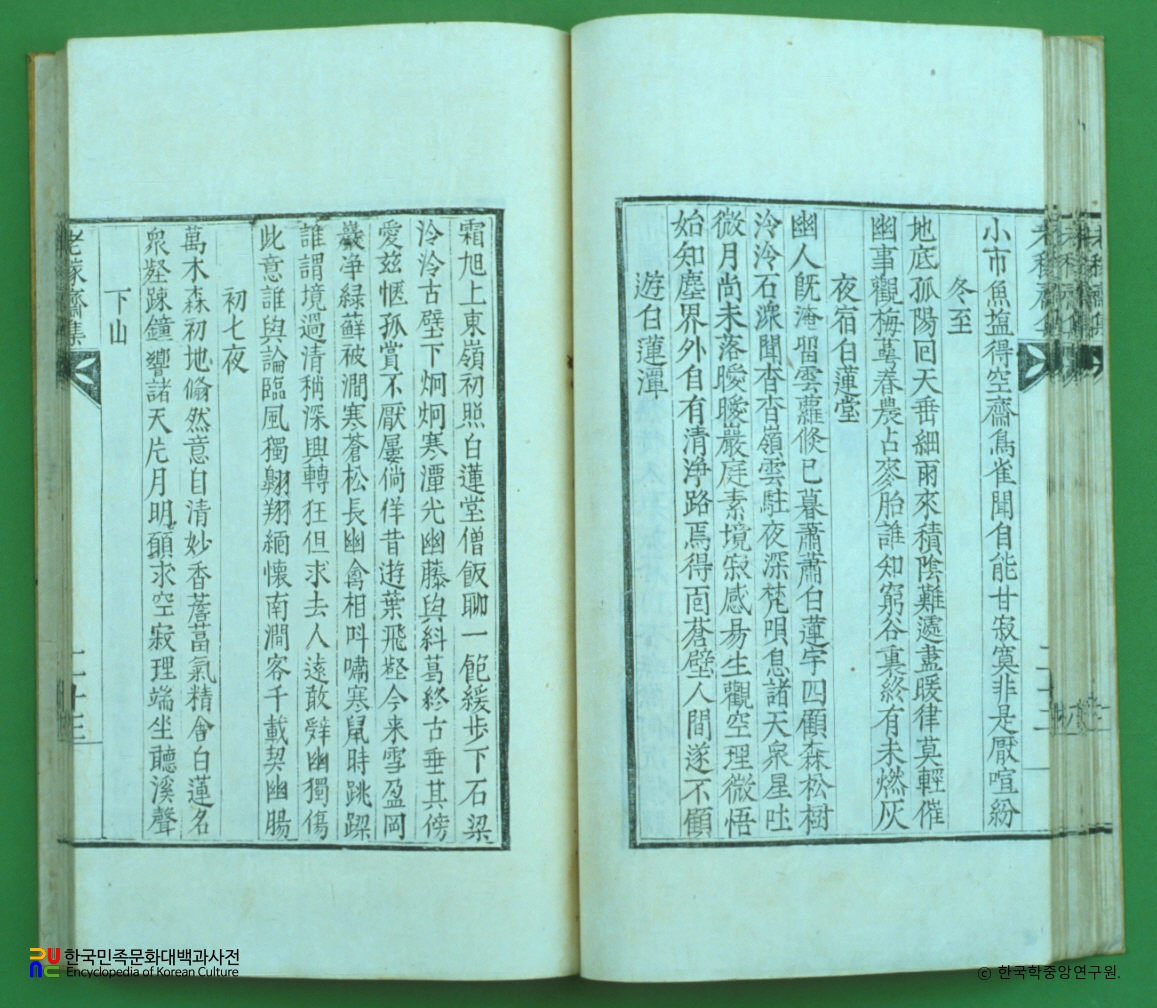 小市魚塩得空齋鳥雀聞自能甘寂寞非是厭喧紛
冬至
地底孤陽回天垂細雨來積陰難遽盡暖律莫輕催
幽事觀梅蕚春農占麥胎誰知窮谷裏終有未燃灰
夜宿白蓮堂
幽人旣淹留雲蘿倏已暮蕭蕭白蓮宇四顧森松樹
泠泠石濑聞杳杳嶺雲駐夜深梵唄息諸天衆星吐
微月尚未落曖曖巖庭素境寂感易生觀空理微悟
始知塵界外自有淸淨路焉得面蒼壁人間遂不顧
遊白蓮潭
霜旭上東嶺初照白蓮堂僧飯聊一飽緩步下石梁
泠泠古壁下炯炯寒潭光幽藤與糾葛終古垂其傍
愛玆愜孤賞不厭屢倘佯昔遊葉飛壑今来雪盈岡
巖净緑蘚被澗寒蒼松長幽禽相呌嘯寒鼠時跳踉
誰謂境過清稍深興轉狂但求去人遠敢辭幽獨傷
此意誰與論臨風獨翺翔緬懷南澗客千載契幽腸
初七夜
萬木森初地翛然意自清妙香薝葍氣精舍白蓮名
衆壑踈鐘響諸天片月明願求空寂理端坐聽溪聲
下山
老稼齋集
二十三
한국민족문화대백과사전
Encyclopedia of Korean Culture
© 한국학중앙연구원.